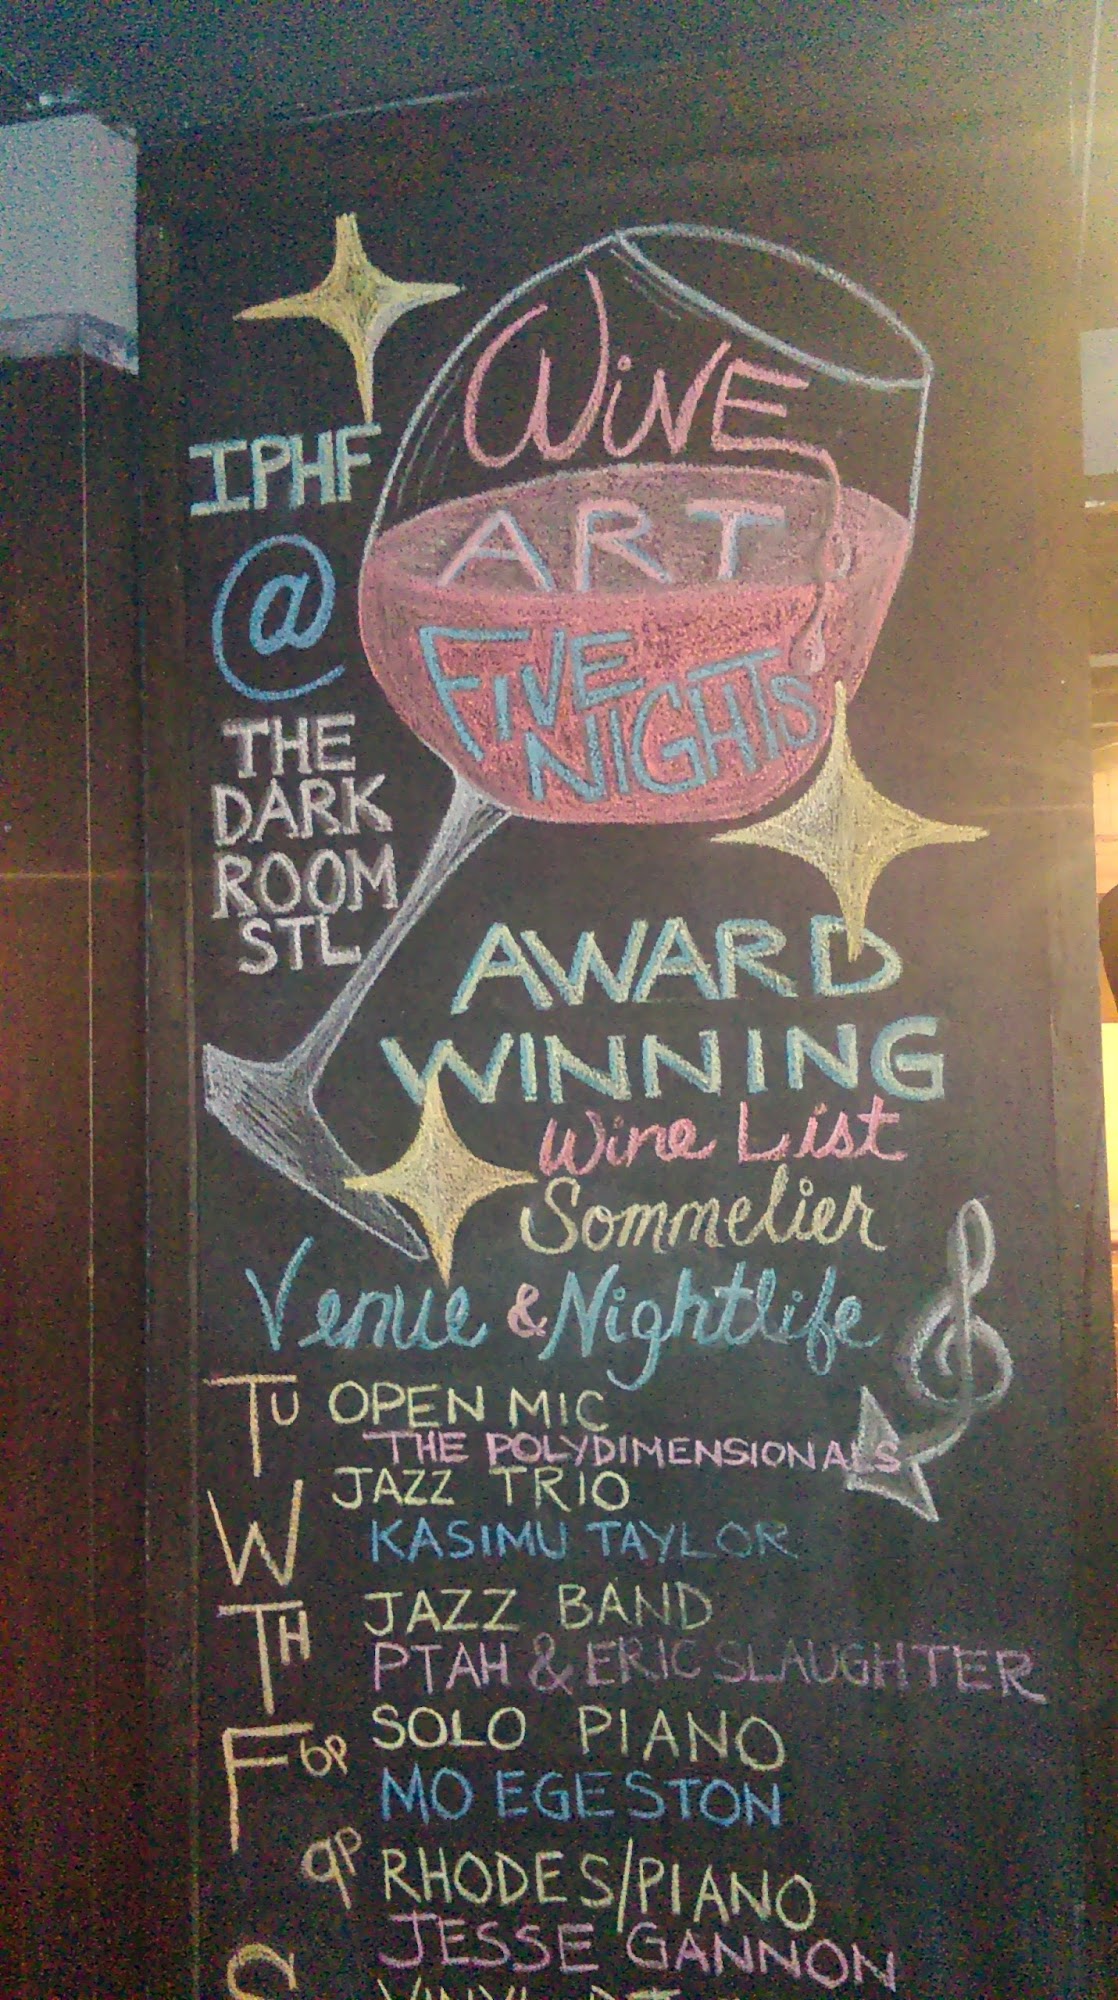 WiNE
ART
FIVE
NIGHTS
IPHF
@
THE
DARK
ROOM
STL
AWARD
WINNING
Wine List
Sommelier
Venue & Nightlife
TU OPEN MIC
THE POLYDIMENSIONALS
W JAZZ TRIO
KASIMU TAYLOR
TH JAZZ BAND
PTAH & ERIC SLAUGHTER
F 6P SOLO PIANO
MO EGESTON
9P RHODES/PIANO
JESSE GANNON
S
VINYL